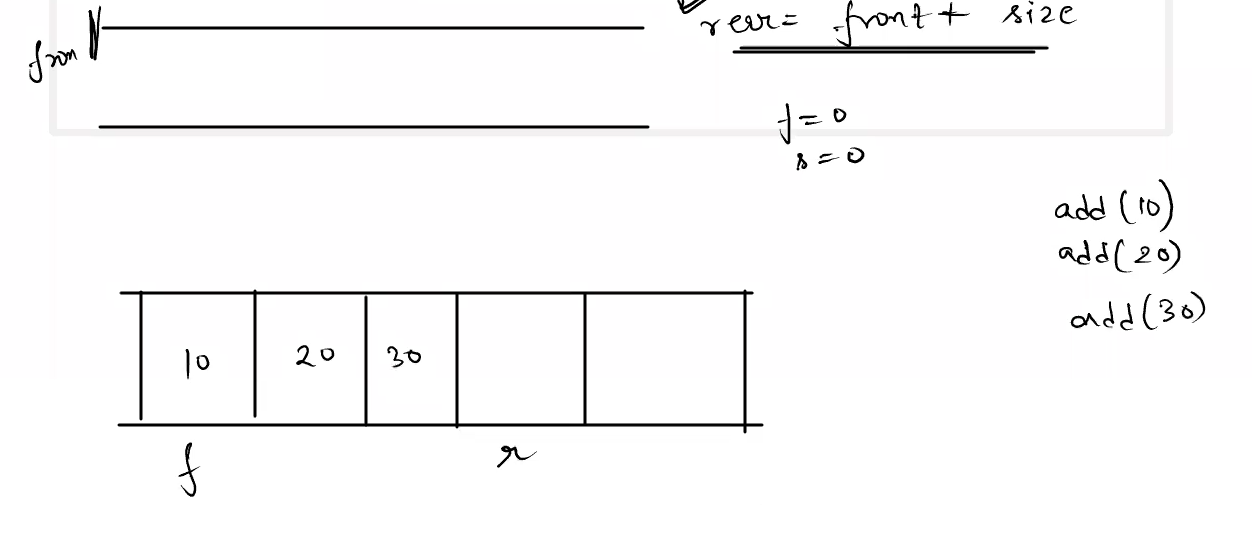 rear= front + size
fron
f=0
s=0
add (10)
add(20)
add(30)
10 20 30
f r